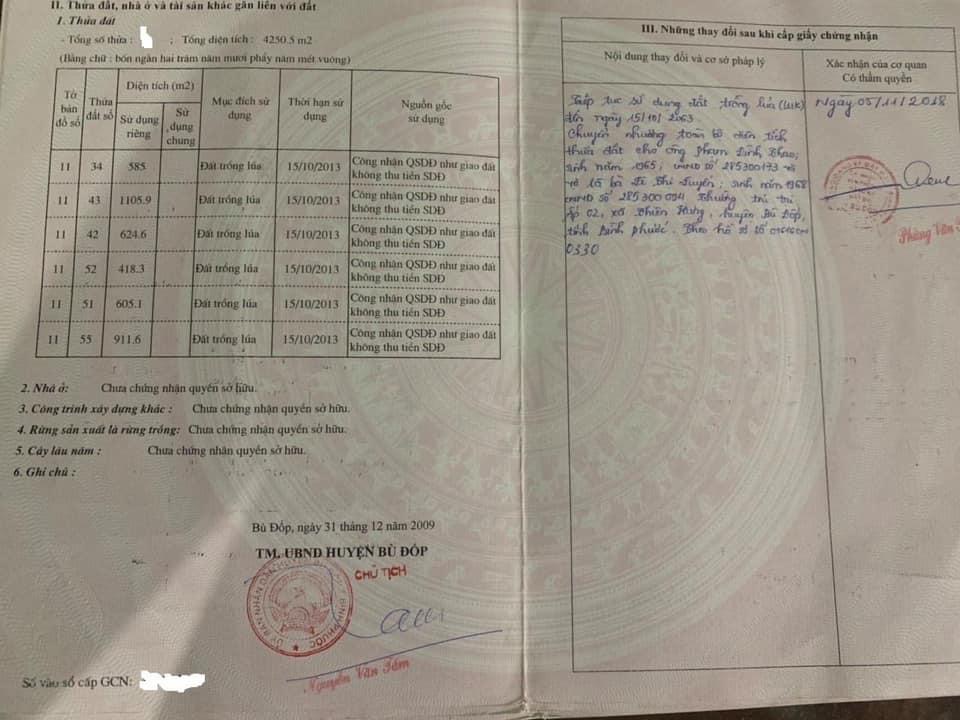 II. Thửa đất, nhà ở và tài sản khác gắn liền với đất
1. Thửa đất
- Tổng số thửa : ; Tổng diện tích : 4250.5 m2
(Bằng chữ : bốn ngàn hai trăm năm mươi phẩy năm mét vuông)
Tờ bản đồ số Thửa đất số Diện tích (m2) Sử dụng riêng Sử dụng chung Mục đích sử dụng Thời hạn sử dụng Nguồn gốc sử dụng
11 34 585 Đất trồng lúa 15/10/2013 Công nhận QSDĐ như giao đất không thu tiền SDĐ
11 43 1105.9 Đất trồng lúa 15/10/2013 Công nhận QSDĐ như giao đất không thu tiền SDĐ
11 42 624.6 Đất trồng lúa 15/10/2013 Công nhận QSDĐ như giao đất không thu tiền SDĐ
11 52 418.3 Đất trồng lúa 15/10/2013 Công nhận QSDĐ như giao đất không thu tiền SDĐ
11 51 605.1 Đất trồng lúa 15/10/2013 Công nhận QSDĐ như giao đất không thu tiền SDĐ
11 55 911.6 Đất trồng lúa 15/10/2013 Công nhận QSDĐ như giao đất không thu tiền SDĐ
2. Nhà ở: Chưa chứng nhận quyền sở hữu.
3. Công trình xây dựng khác : Chưa chứng nhận quyền sở hữu.
4. Rừng sản xuất là rừng trồng: Chưa chứng nhận quyền sở hữu.
5. Cây lâu năm : Chưa chứng nhận quyền sở hữu.
6. Ghi chú :
Bù Đốp, ngày 31 tháng 12 năm 2009
TM. UBND HUYỆN BÙ ĐỐP
CHỦ TỊCH
Nguyễn Văn Tám
Số vào sổ cấp GCN:
III. Những thay đổi sau khi cấp giấy chứng nhận
Nội dung thay đổi và cơ sở pháp lý
Xác nhận của cơ quan
Có thẩm quyền
Tiếp tục sử dụng đất trồng lúa (LUK)
đến ngày 15/10/2063
Chuyển nhượng toàn bộ diện tích
thửa đất cho ông Phạm Đình Thao;
sinh năm 1965; CMND số 285300173
vợ là bà Thị sinh năm 1968
CMND số 285 300 094 thường trú tại
ấp 02, xã Thiện Hưng, huyện Bù Đốp,
tỉnh Bình Phước. Theo hồ sơ số
0330
Ngày 05/11/2018
Phùng Văn